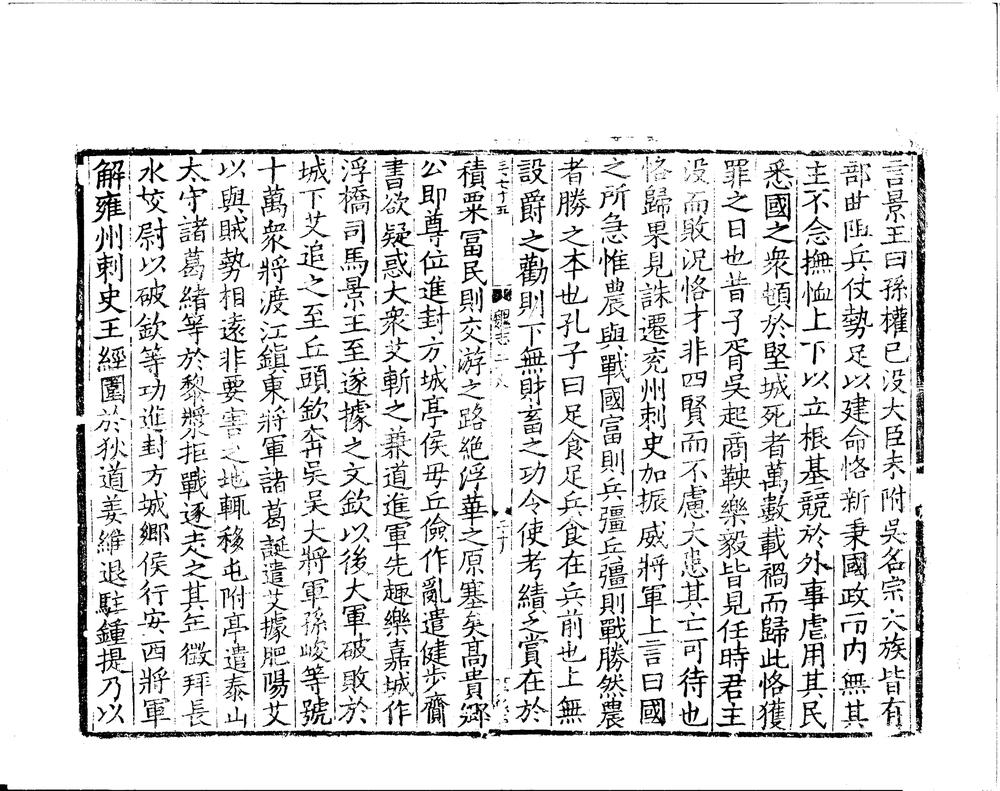 言景王曰孫權已没大臣未附吳名宗大族皆有
部曲阻兵仗勢足以建命恪新秉國政而内無其
主不念撫恤上下以立根基競於外事虐用其民
悉國之衆頓於堅城死者萬數載禍而歸此恪獲
罪之日也昔子胥吳起商鞅樂毅皆見任時君主
没而敗況恪才非四賢而不慮大患其亡可待也
恪歸果見誅遷兖州刺史加振威將軍上言曰國
之所急惟農與戰國富則兵彊兵彊則戰勝然農
者勝之本也孔子曰足食足兵食在兵前也上無
設爵之勸則下無財畜之功今使考績之賞在於
三七十五 魏志二八 二十
積粟富民則交游之路絶浮華之原塞矣髙貴鄉
公即尊位進封方城亭侯毋丘儉作亂遣健步齎
書欲疑惑大衆艾斬之兼道進軍先趣樂嘉城作
浮橋司馬景王至遂據之文欽以後大軍破敗於
城下艾追之至丘頭欽奔吳吳大將軍孫峻等號
十萬衆將渡江鎮東將軍諸葛誕遣艾據肥陽艾
以與賊勢相遠非要害之地輒移屯附亭遣泰山
太守諸葛緒等於黎漿拒戰遂走之其年徵拜長
水校尉以破欽等功進封方城鄉侯行安西將軍
解雍州刺史王經圍於狄道姜維退駐鍾提乃以